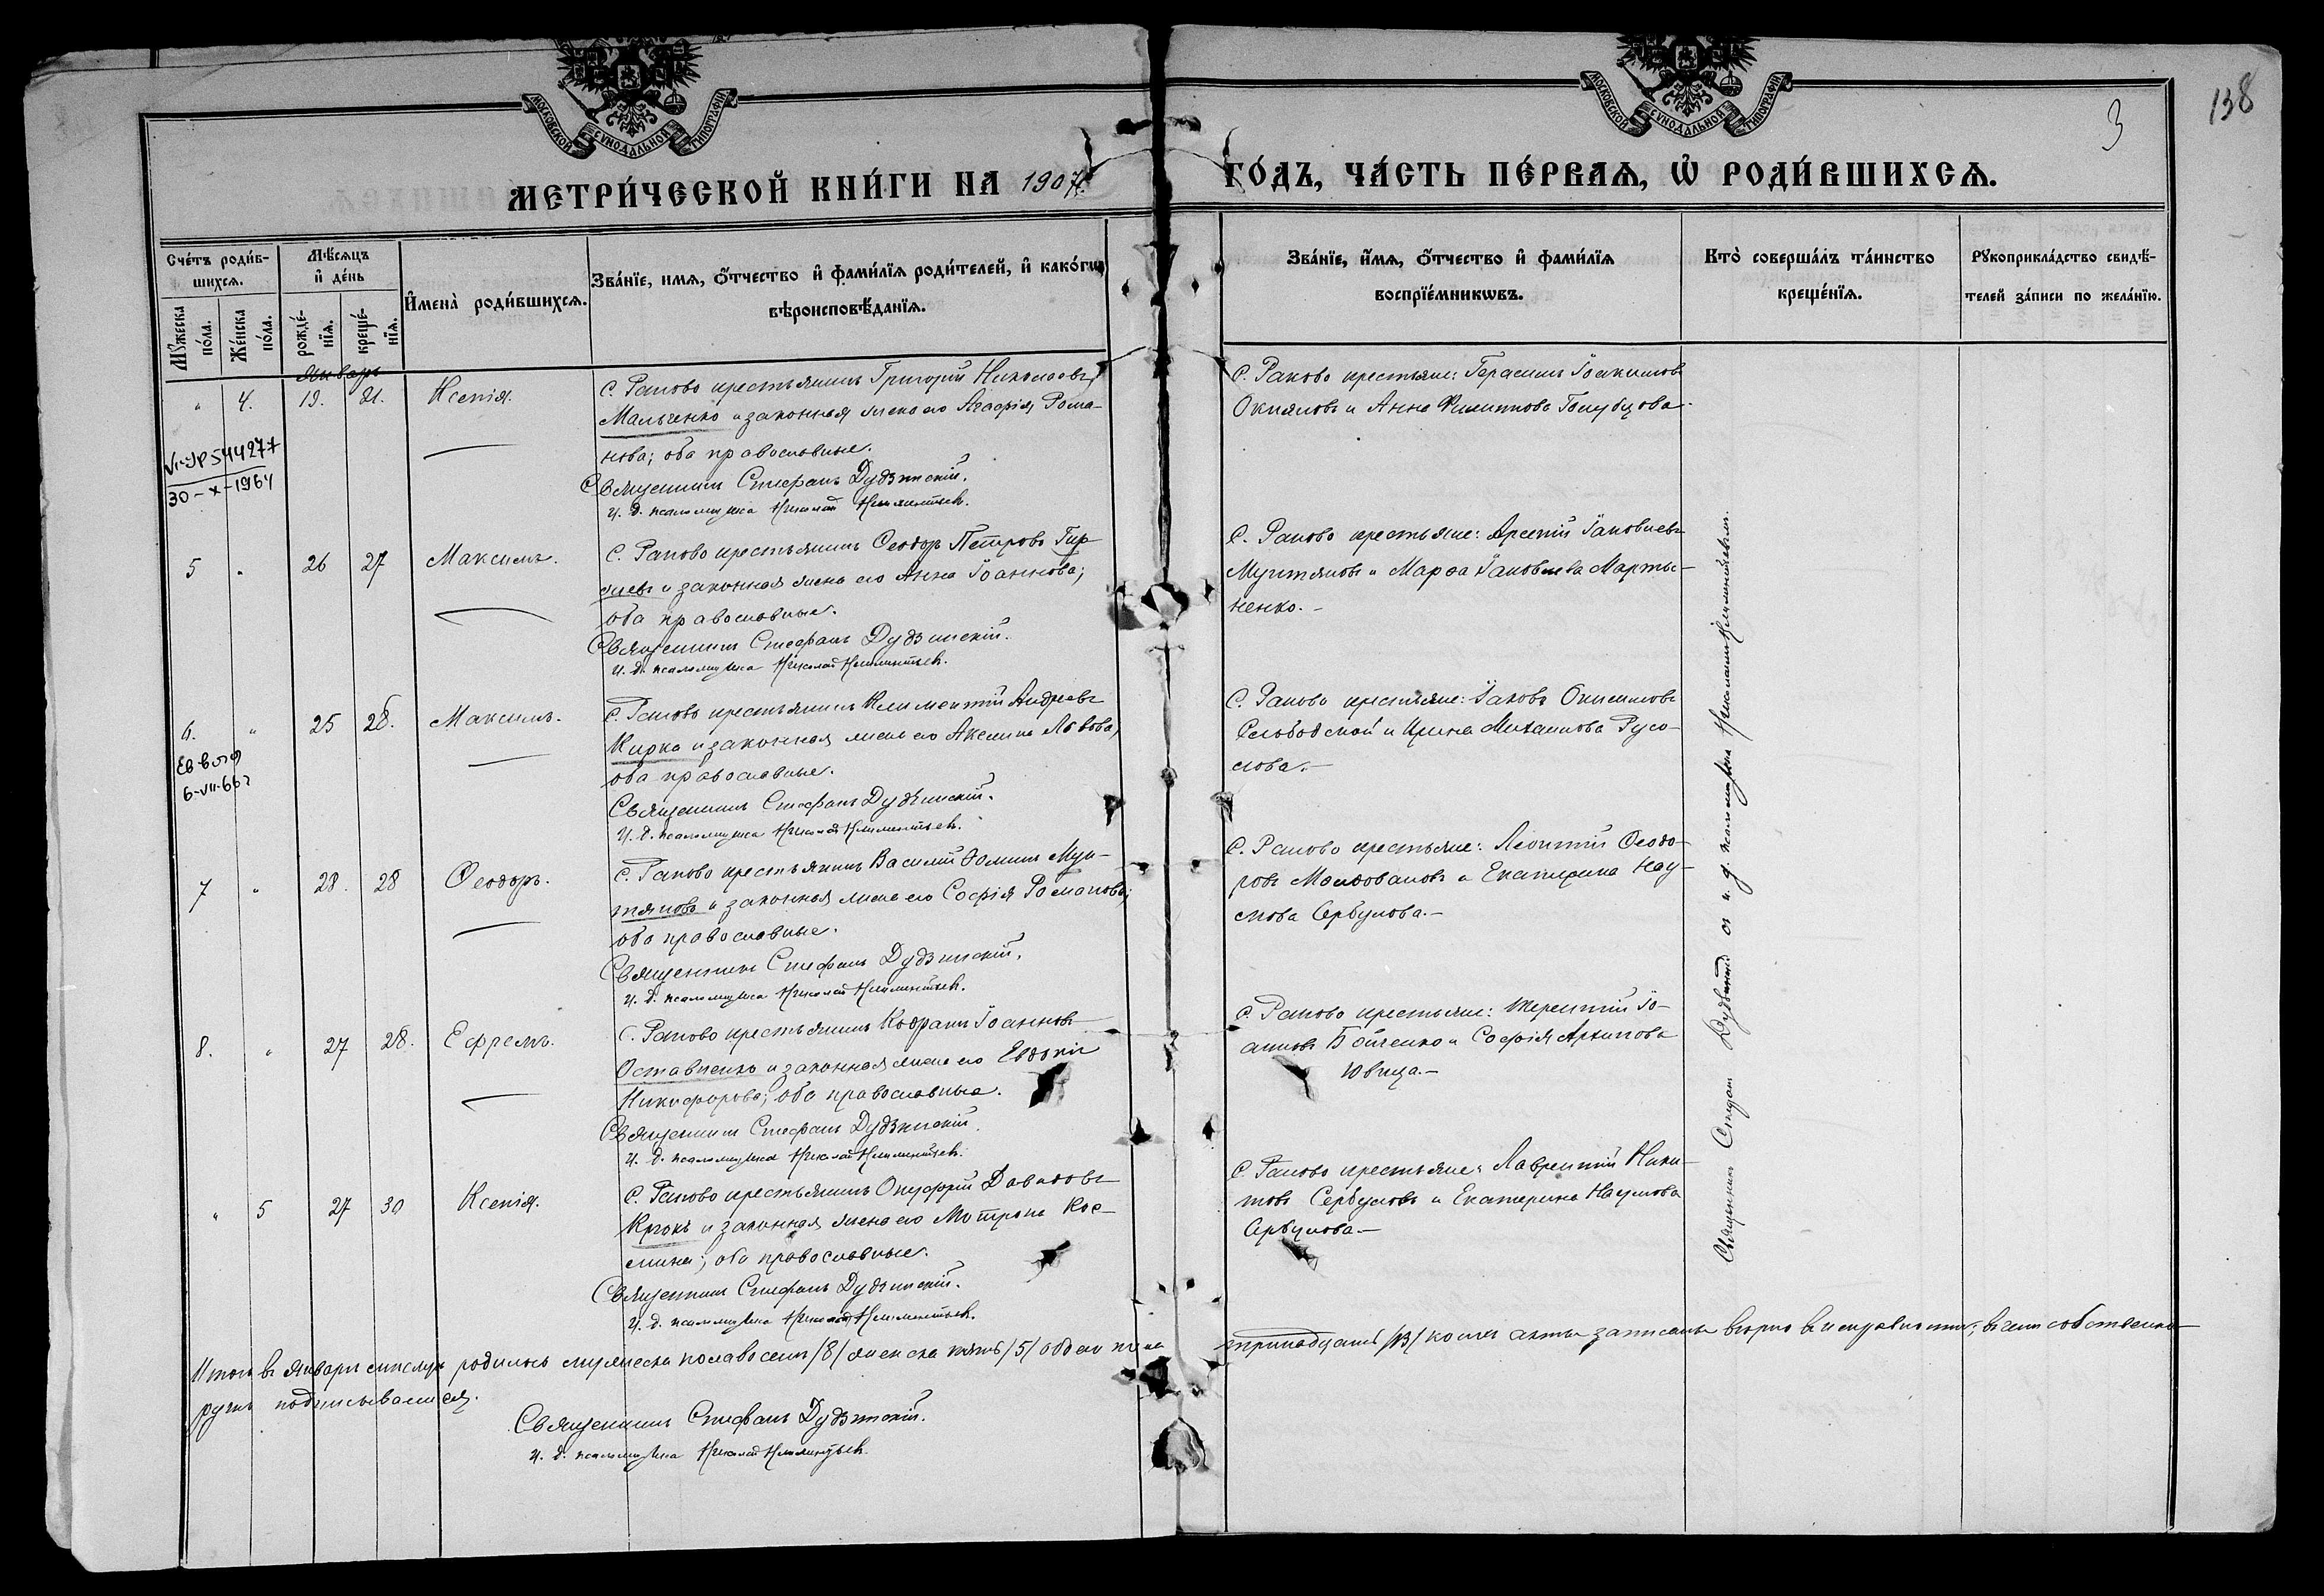 МОСКОВСКОЙ СѴНОДАЛЬНОЙ ТИПОГРАФІИ
МОСКОВСКОЙ СѴНОДАЛЬНОЙ ТИПОГРАФІИ
3
138
МЕТРИ́ЧЕСКОЙ КНИ́ГИ НА 1907
ГО́ДЪ, ЧА́СТЬ ПЕ́РВАЯ, Ѡ РОДИ́ВШИХСЯ.
Сче́тъ роди́в-
шихся.
Мꙋ́жеска по́ла.
Же́нска по́ла.
Мѣ́сяцъ
и де́нь
рожде́-
нїя.
креще́-
нїя.
Имена̀ роди́вшихся.
Зва́нїе, имя, о́тчество и фами́лїя роди́телей, и како́гω
вѣроисповѣ́данїя.
Зва́нїе, и́мя, о́тчество и фами́лїя
воспрїе́мникωвъ.
Кто̀ соверша́лъ та́инство
креще́нїя.
Рꙋкоприкла́дство свидѣ́-
телей за́писи по жела́нїю.
Январь
" 4. 19. 21. Ксенія.
С. Раково крестьянинъ Григорій Николаевъ
Мальченко и законная жена его Агафія Рома-
нова; оба православные.
Священникъ Стефанъ Дудзинскій.
И. д. псаломщика Николай Климентьев.
С. Раково крестьяне: Герасимъ Іоакимов
Окияновъ и Анна Филиппова Голубцова.
544277
30-X-1964
5 " 26 27 Максимъ.
С. Раково крестьянинъ Ѳеодоръ Петровъ
и законная жена его Анна Іоаннова;
оба православные.
Священникъ Стефанъ Дудзинскій.
И. д. псаломщика Николай Климентьев.
С. Раково крестьяне: Арсеній Іаковлевъ
Мунтяновъ и Марѳа Іаковлева Марты-
ненко.-
6. " 25 28. Максимъ.
6-VII-66г
С. Раково крестьянинъ Климентій Андреевъ
Кирка и законная жена его Акелина Львова,
оба православные.
Священникъ Стефанъ Дудзинскій.
И. д. псаломщика Николай Климентьев.
С. Раково крестьяне: Іаковъ Онисимовъ
Слободской и Ирина Михаилова Русо-
лова.-
7 " 28. 28 Ѳеодоръ.
С. Раково крестьянинъ Василій Ѳоминъ Мун-
тяновъ и законная жена его Софія Романова;
оба православные.
Священникъ Стефанъ Дудзинскій.
И. д. псаломщика Николай Климентьев.
С. Раково крестьяне: Леонтій Ѳеодо-
ровъ Молдовановъ и Екатерина Нау-
мова Сербулова.-
8. " 27 28. Ефремъ.
С. Раково крестьянинъ Кодратъ Іоанновъ
Оставненко и законная жена его Евдокія
Никифорова; оба православные.
Священникъ Стефанъ Дудзинскій.
И. д. псаломщика Николай Климентьев.
С. Раково крестьяне: Терентій Іо-
анновъ Бойченко и Софія Архипова
Ювица.-
" 5 27 30 Ксенія.
С. Раково крестьянинъ Онуфрій Давидовъ
Крюкъ и законная жена его Матрона Кос-
мина; оба православные.
Священникъ Стефанъ Дудзинскій.
И. д. псаломщика Николай Климентьев.
С. Раково крестьяне: Лаврентій Ники-
товъ Сербуловъ и Екатерина Наумова
Сербулова.-
Священникъ Стефанъ Дудзинскій съ и. д. псаломщика Николаемъ Климентьевымъ.
Итого въ январѣ мѣсяцѣ родилось мужеска пола восемь /8/ женска пять /5/ обоего пола тринадцать /13/ коихъ акты записаны вѣрно въ исправности, въ чемъ собственно-
ручно подписываемся.
Священникъ Стефанъ Дудзинскій.
И. д. псаломщика Николай Климентьев.